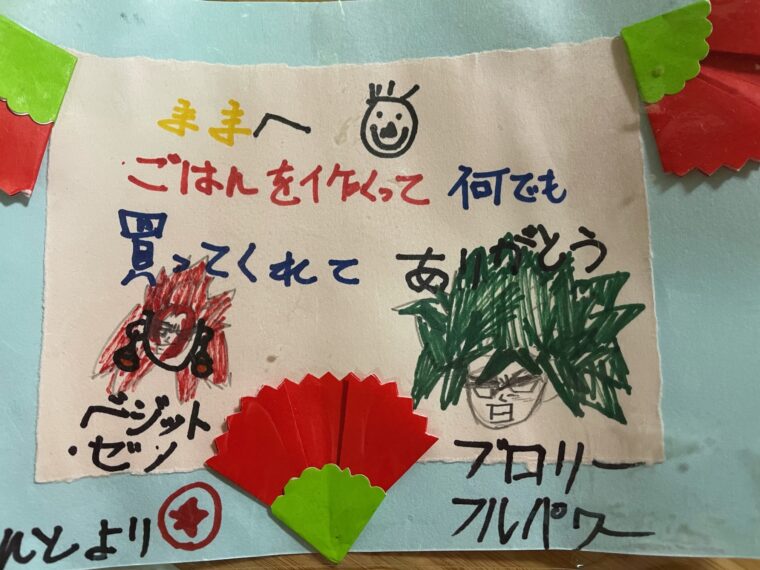 ままへ
ごはんを作くって 何でも
買ってくれて ありがとう
ベジット
・ゼノ
ブロリー
フルパワー
んとより